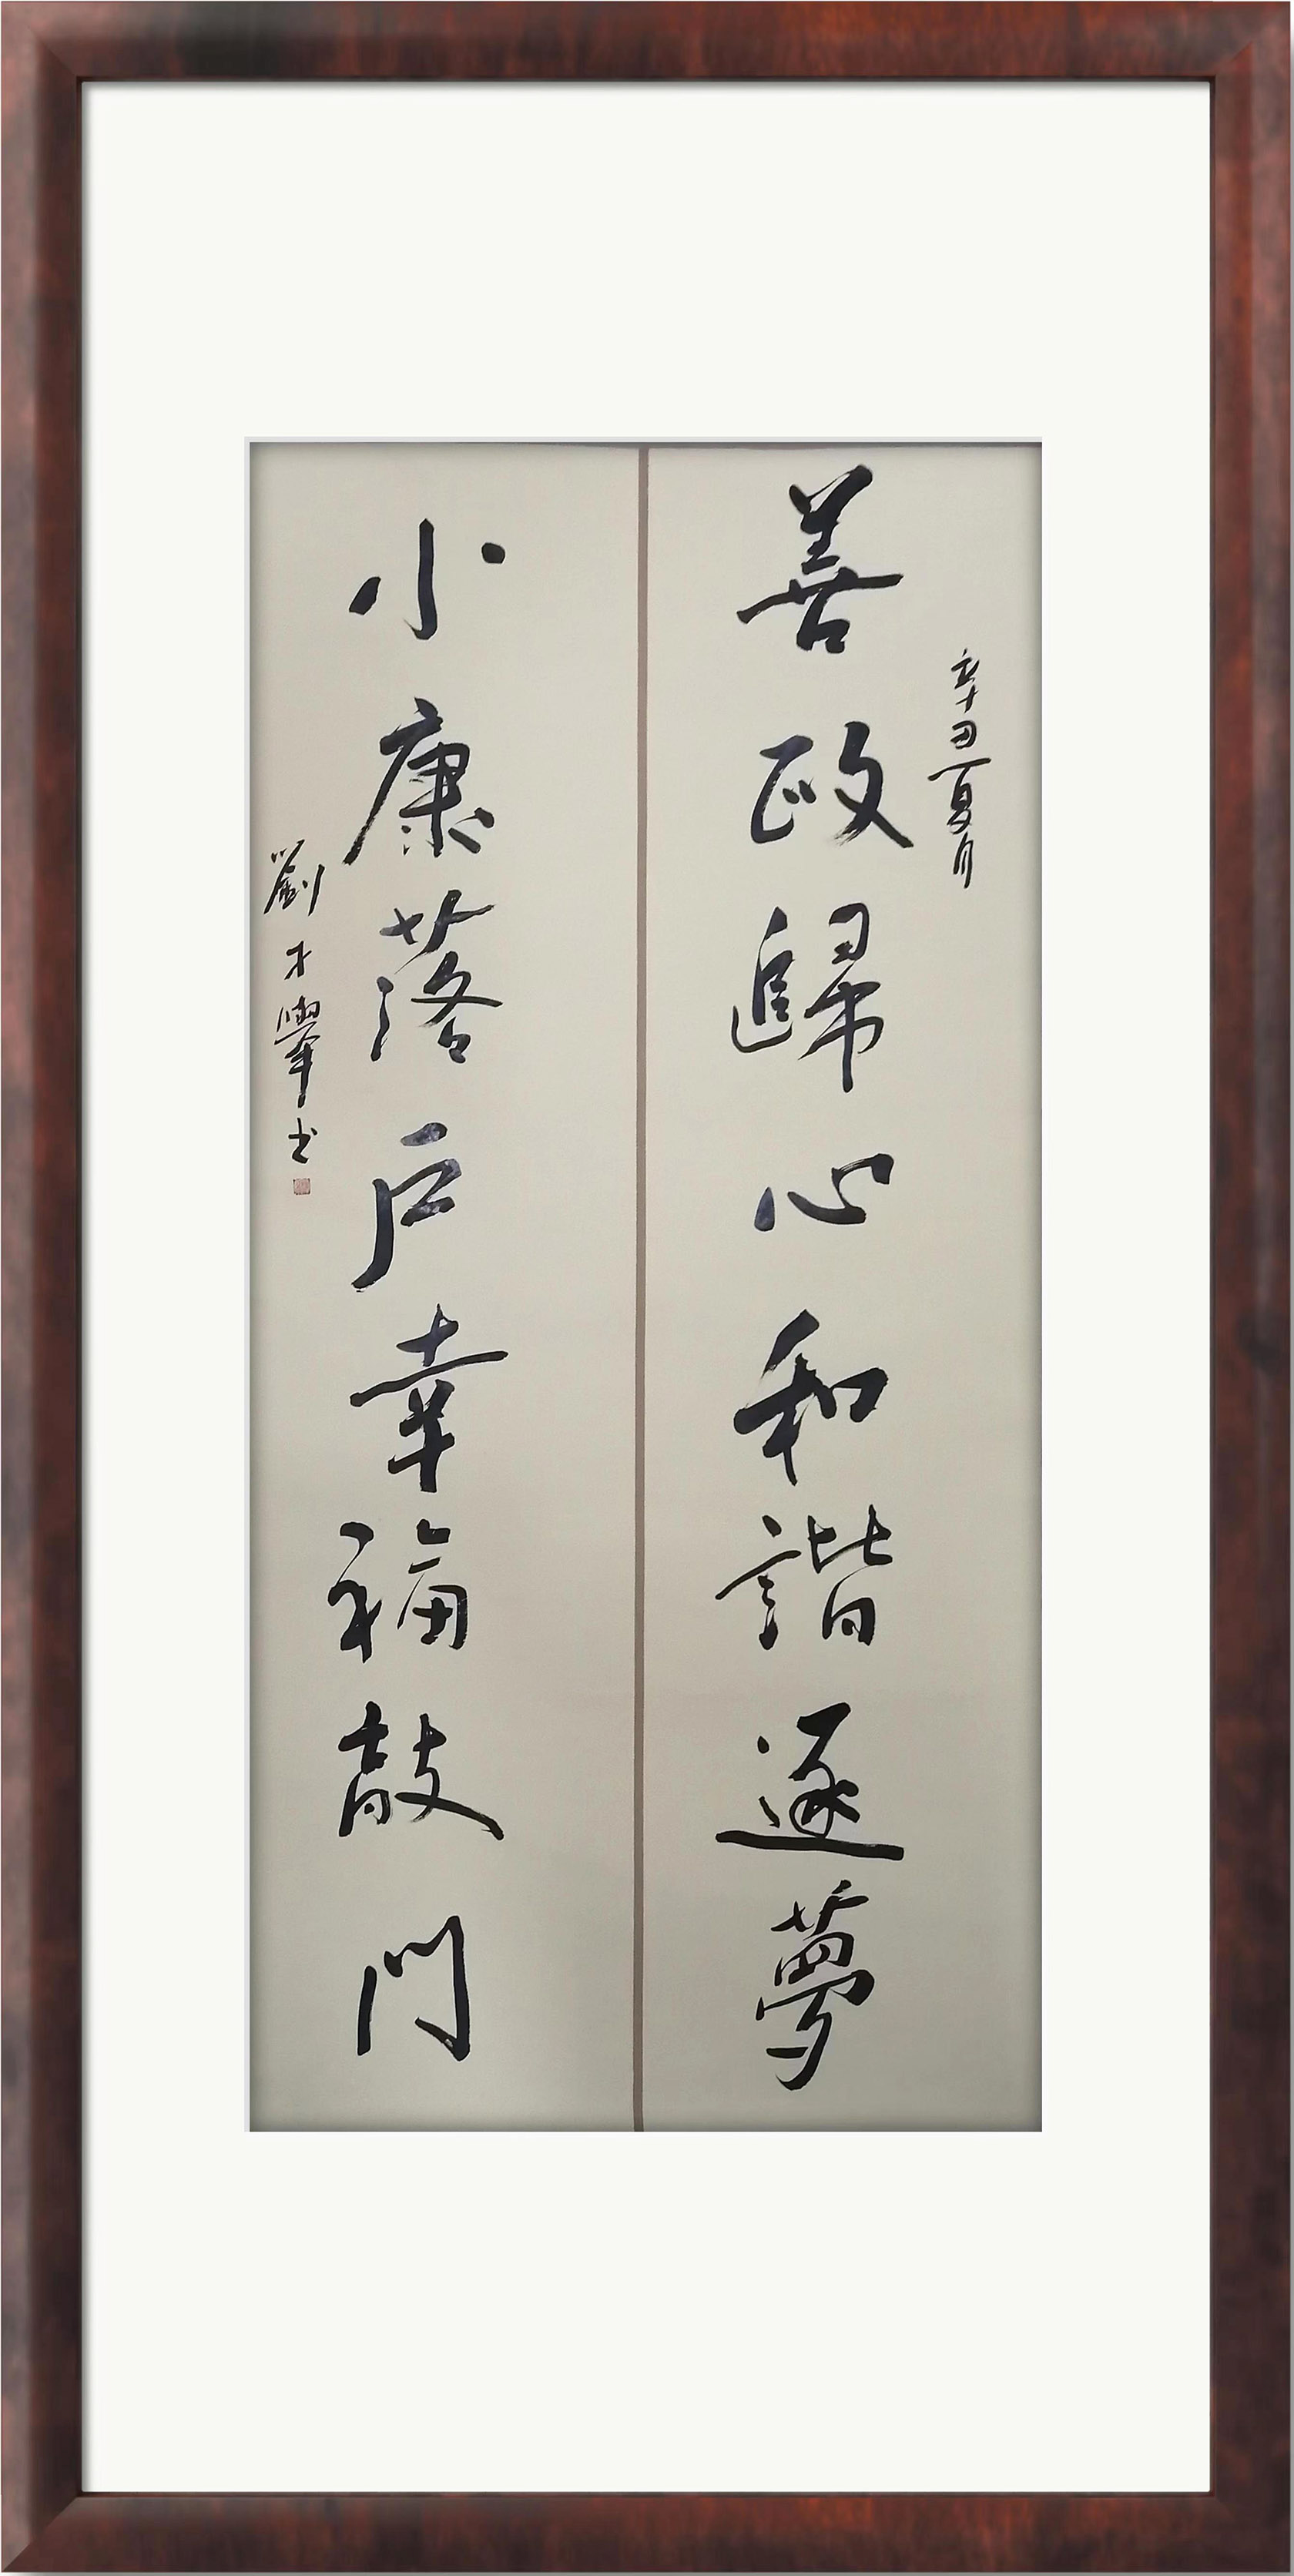 辛丑夏月
善政歸心和諧逐夢
小康落戶幸福敲門
劉才舉书